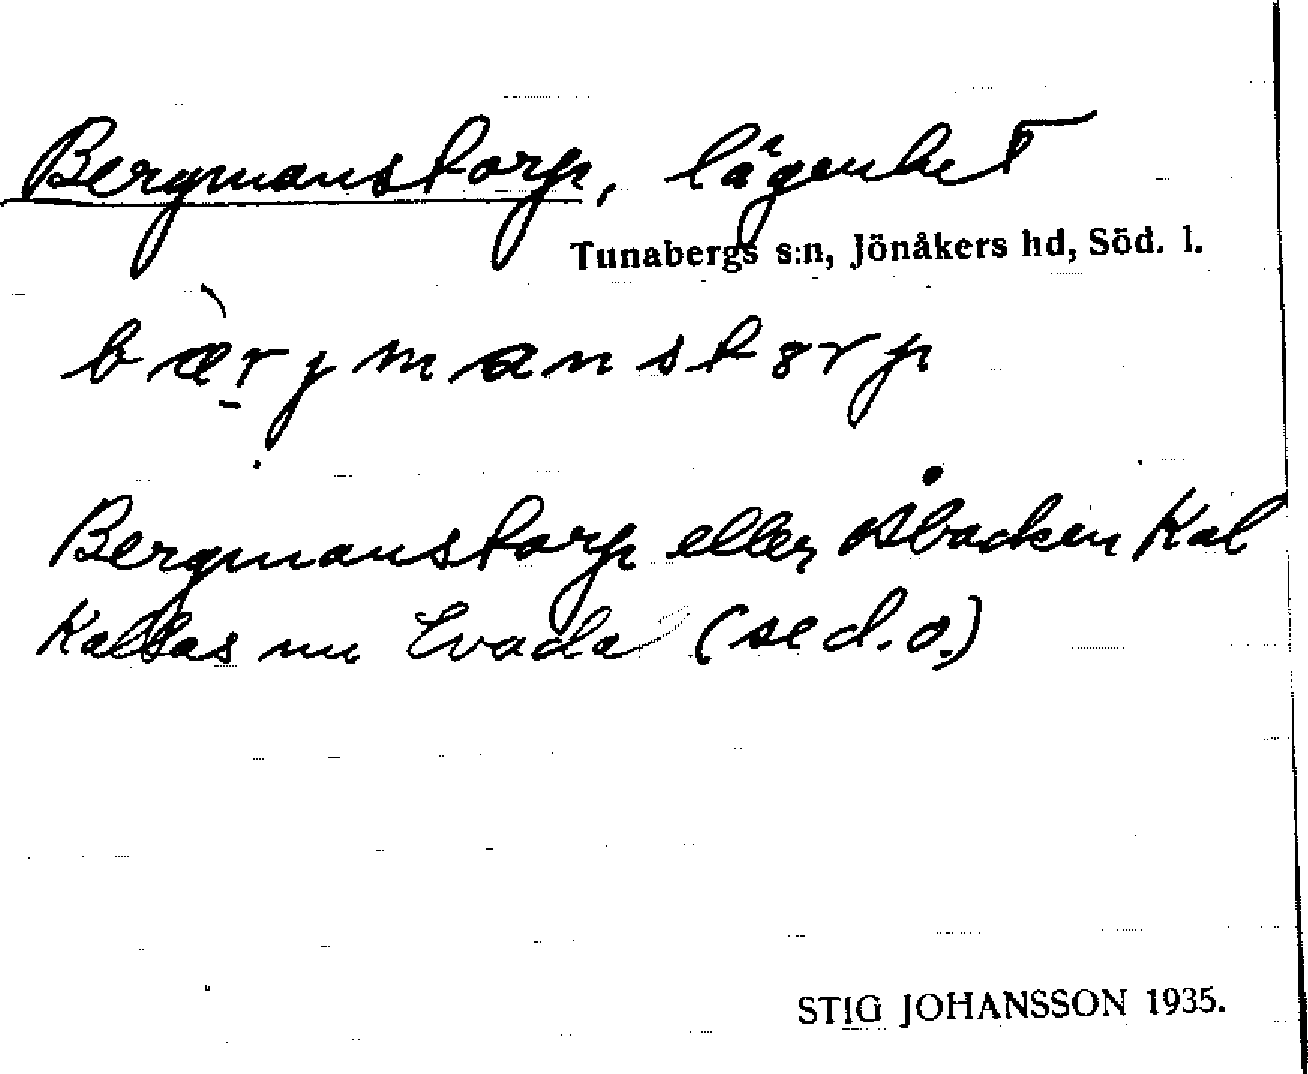 Bergmanstorp, lägenhet
Tunabergs s:n, Jönåkers hd, Söd. l.
bærjmanstorp
Bergmanstorp eller Åbacken kal
kallas nu Evada (se d.o.)
STIG JOHANSSON 1935.